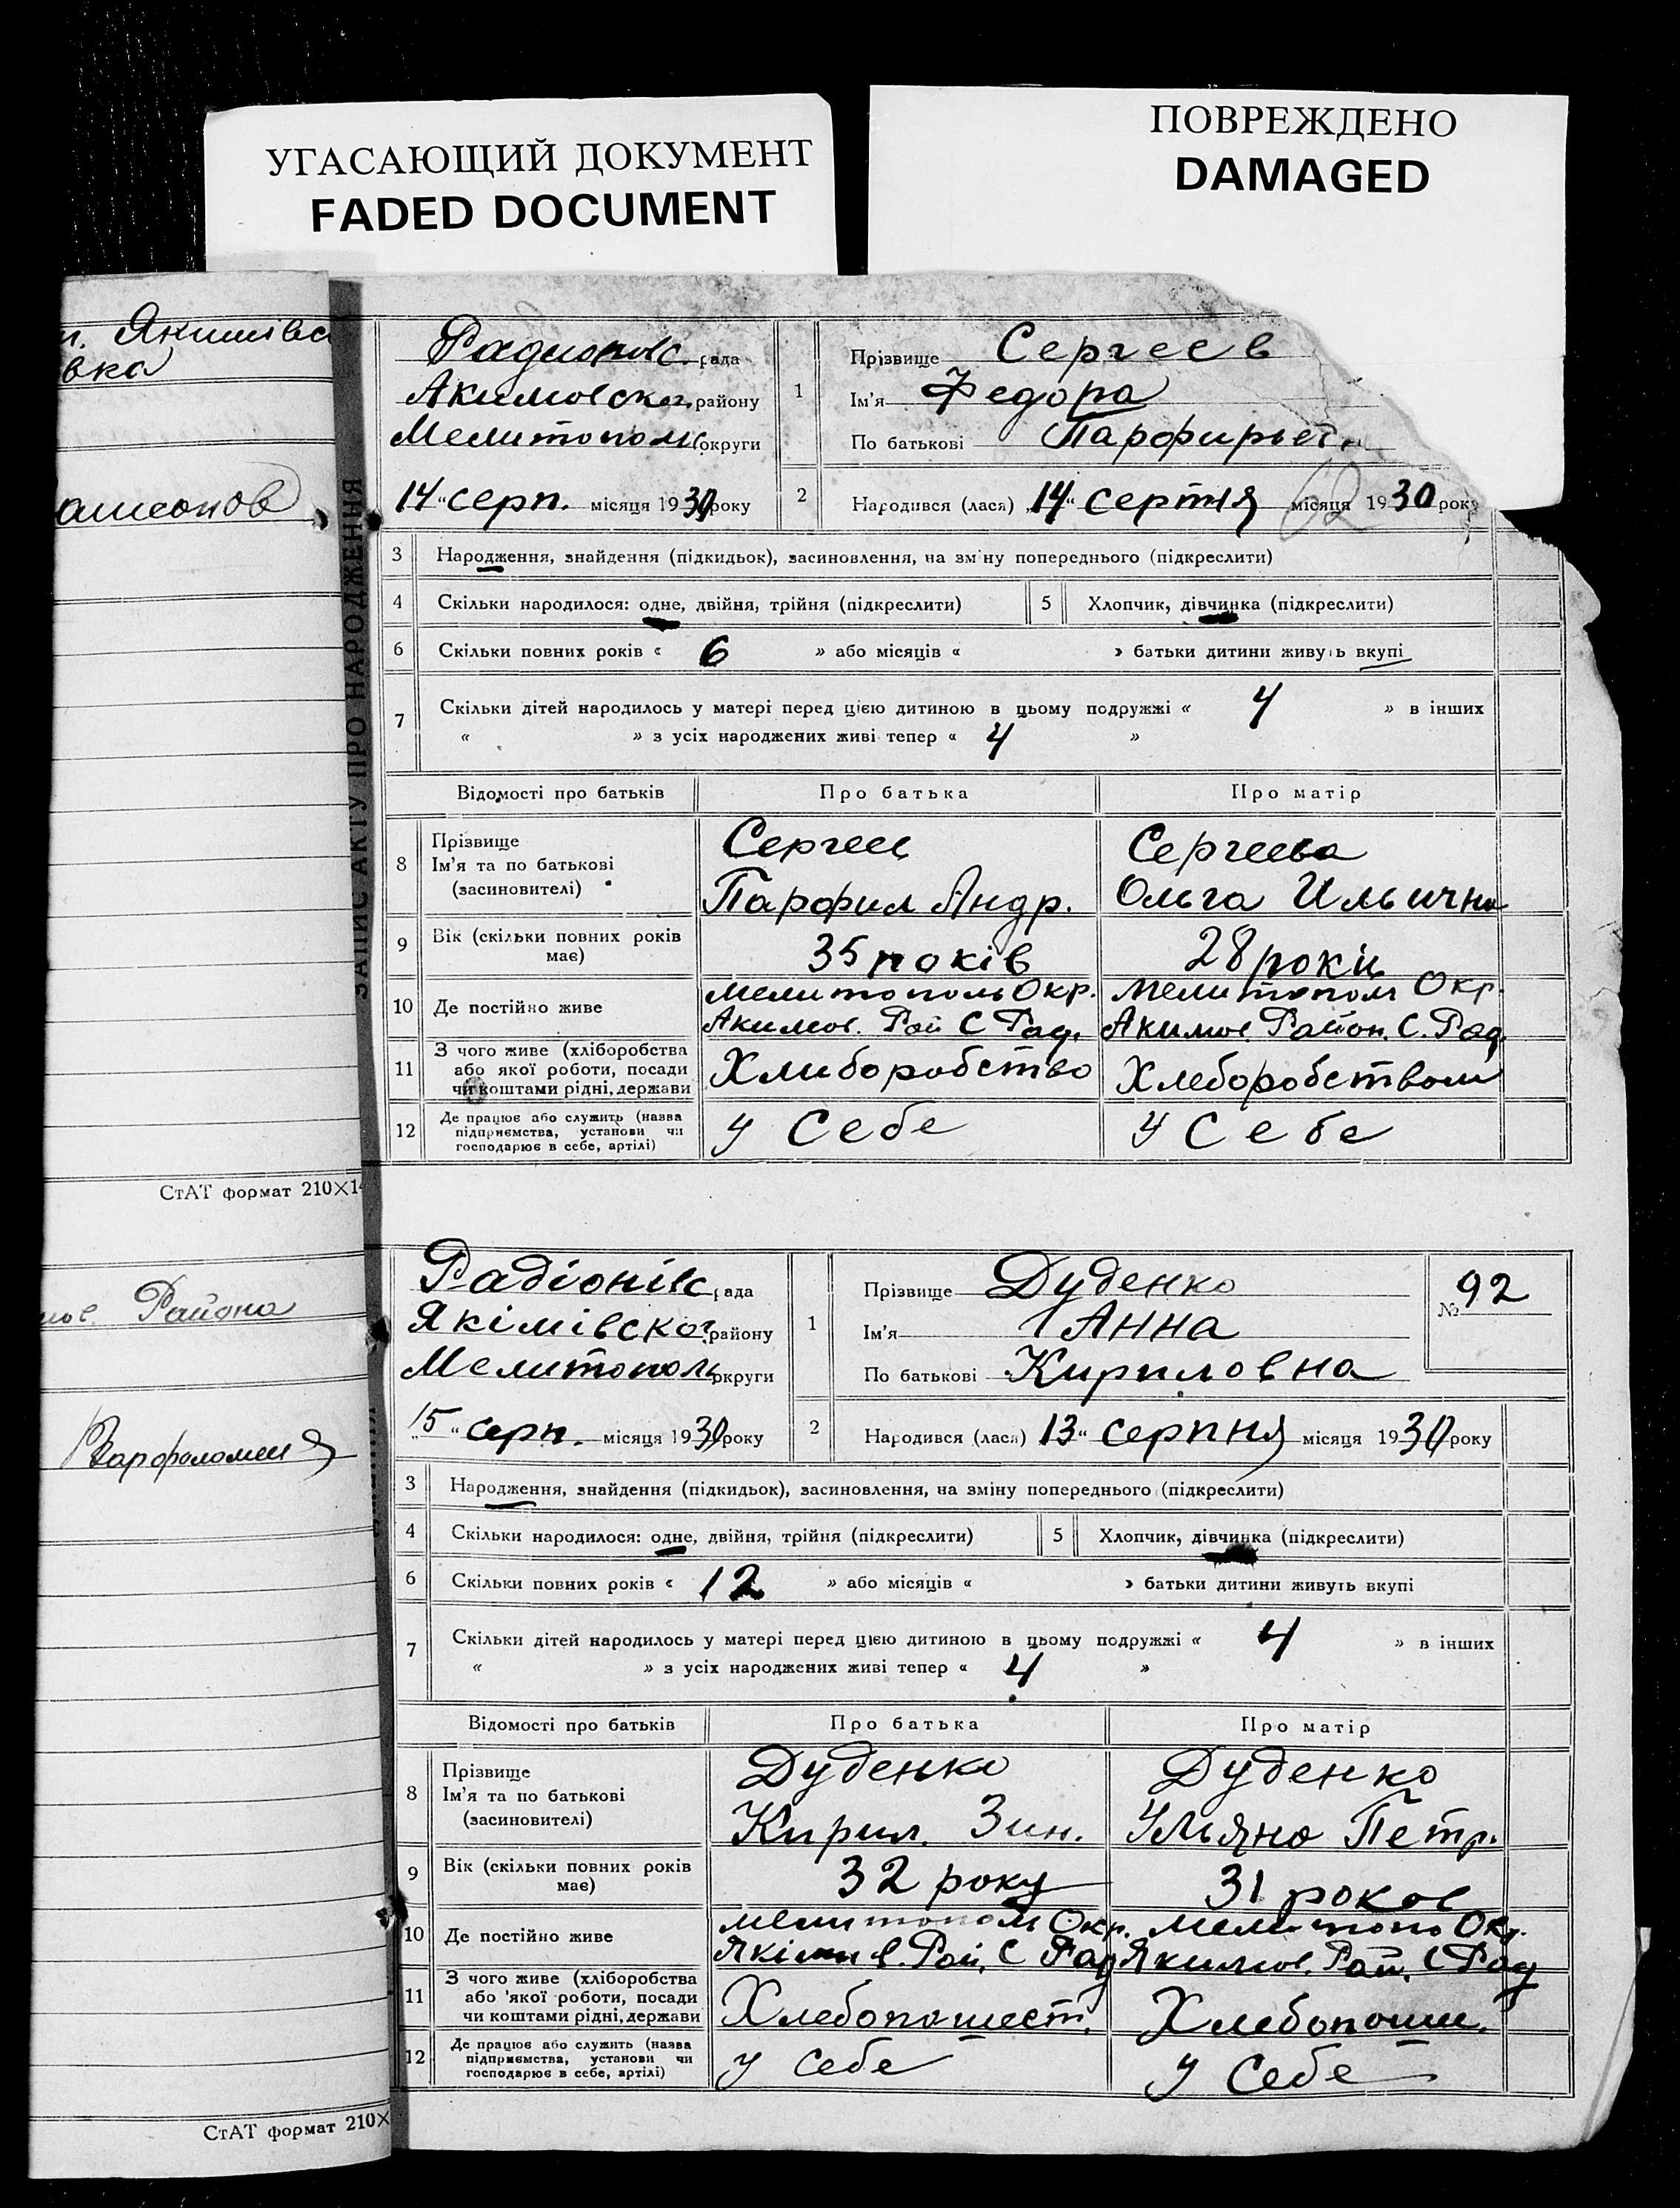 УГАСАЮЩИЙ ДОКУМЕНТ
FADED DOCUMENT
ПОВРЕЖДЕНО
DAMAGED
вка
ЗАПИС АКТУ ПРО НАРОДЖЕННЯ
СтАТ формат 210×14
Района
Варфоломея
СтАТ формат 210×
рада
Акимовског району
Мелитополь округи
14 "серп. місяця 1930 року
1
Прізвище Сергеев
Ім'я Федора
По батькові
2
Народився (лася) „14" серпня місяця 1930 року
62
3 Народження, знайдення (підкидьок), засиновлення, на зміну попереднього (підкреслити)
4 Скільки народилося: одне, двійня, трійня (підкреслити) 5 Хлопчик, дівчинка (підкреслити)
6 Скільки повних років « 6 » або місяців « » батьки дитини живуть вкупі
7 Скільки дітей народилось у матері перед цією дитиною в цьому подружжі « 4 » в інших
« » з усіх народжених живі тепер « 4 »
Відомості про батьків Про батька Про матір
8 Прізвище
Ім'я та по батькові
(засиновителі)
Сергеев
Парфил Андр.
Сергеева
Ольга Ильична
9 Вік (скільки повних років
має)
35 років
28 роки
10 Де постійно живе
Мелитополь Окр.
Акимов. Рай С Рад.
Мелитополь Окр.
Акимов. Район. С. Рад.
11 З чого живе (хліборобства
або якої роботи, посади
чи коштами рідні, держави
Хлиборобство
Хлеборобством
12 Де працює або служить (назва
підприємства, установи чи
господарює в себе, артілі)
У Себе
У Себе
Радіонівс рада
Якімівског району
Мелитополь округи
15 "серп. місяця 1930 року
1
Прізвище Дуденко
Ім'я Анна
По батькові Кириловна
№ 92
2
Народився (лася) 13 " серпня місяця 1930 року
3 Народження, знайдення (підкидьок), засиновлення, на зміну попереднього (підкреслити)
4 Скільки народилося: одне, двійня, трійня (підкреслити) 5 Хлопчик, дівчинка (підкреслити)
6 Скільки повних років « 12 » або місяців « » батьки дитини живуть вкупі
7 Скільки дітей народилось у матері перед цією дитиною в цьому подружжі « 4 » в інших
« » з усіх народжених живі тепер « 4 »
Відомості про батьків Про батька Про матір
8 Прізвище
Ім'я та по батькові
(засиновителі)
Дуденко
Кирил. Зин.
Дуденко
Ульяна Петр.
9 Вік (скільки повних років
має)
32 року
31 роков
10 Де постійно живе
Мелитополь Окр.
Якімів. Рай. С Рад
Мелитопо Окр.
Якимов. Рай. С Рад
11 З чого живе (хліборобства
або якої роботи, посади
чи коштами рідні, держави
Хлебопашест.
Хлебопаш.
12 Де працює або служить (назва
підприємства, установи чи
господарює в себе, артілі)
у себе
у себе